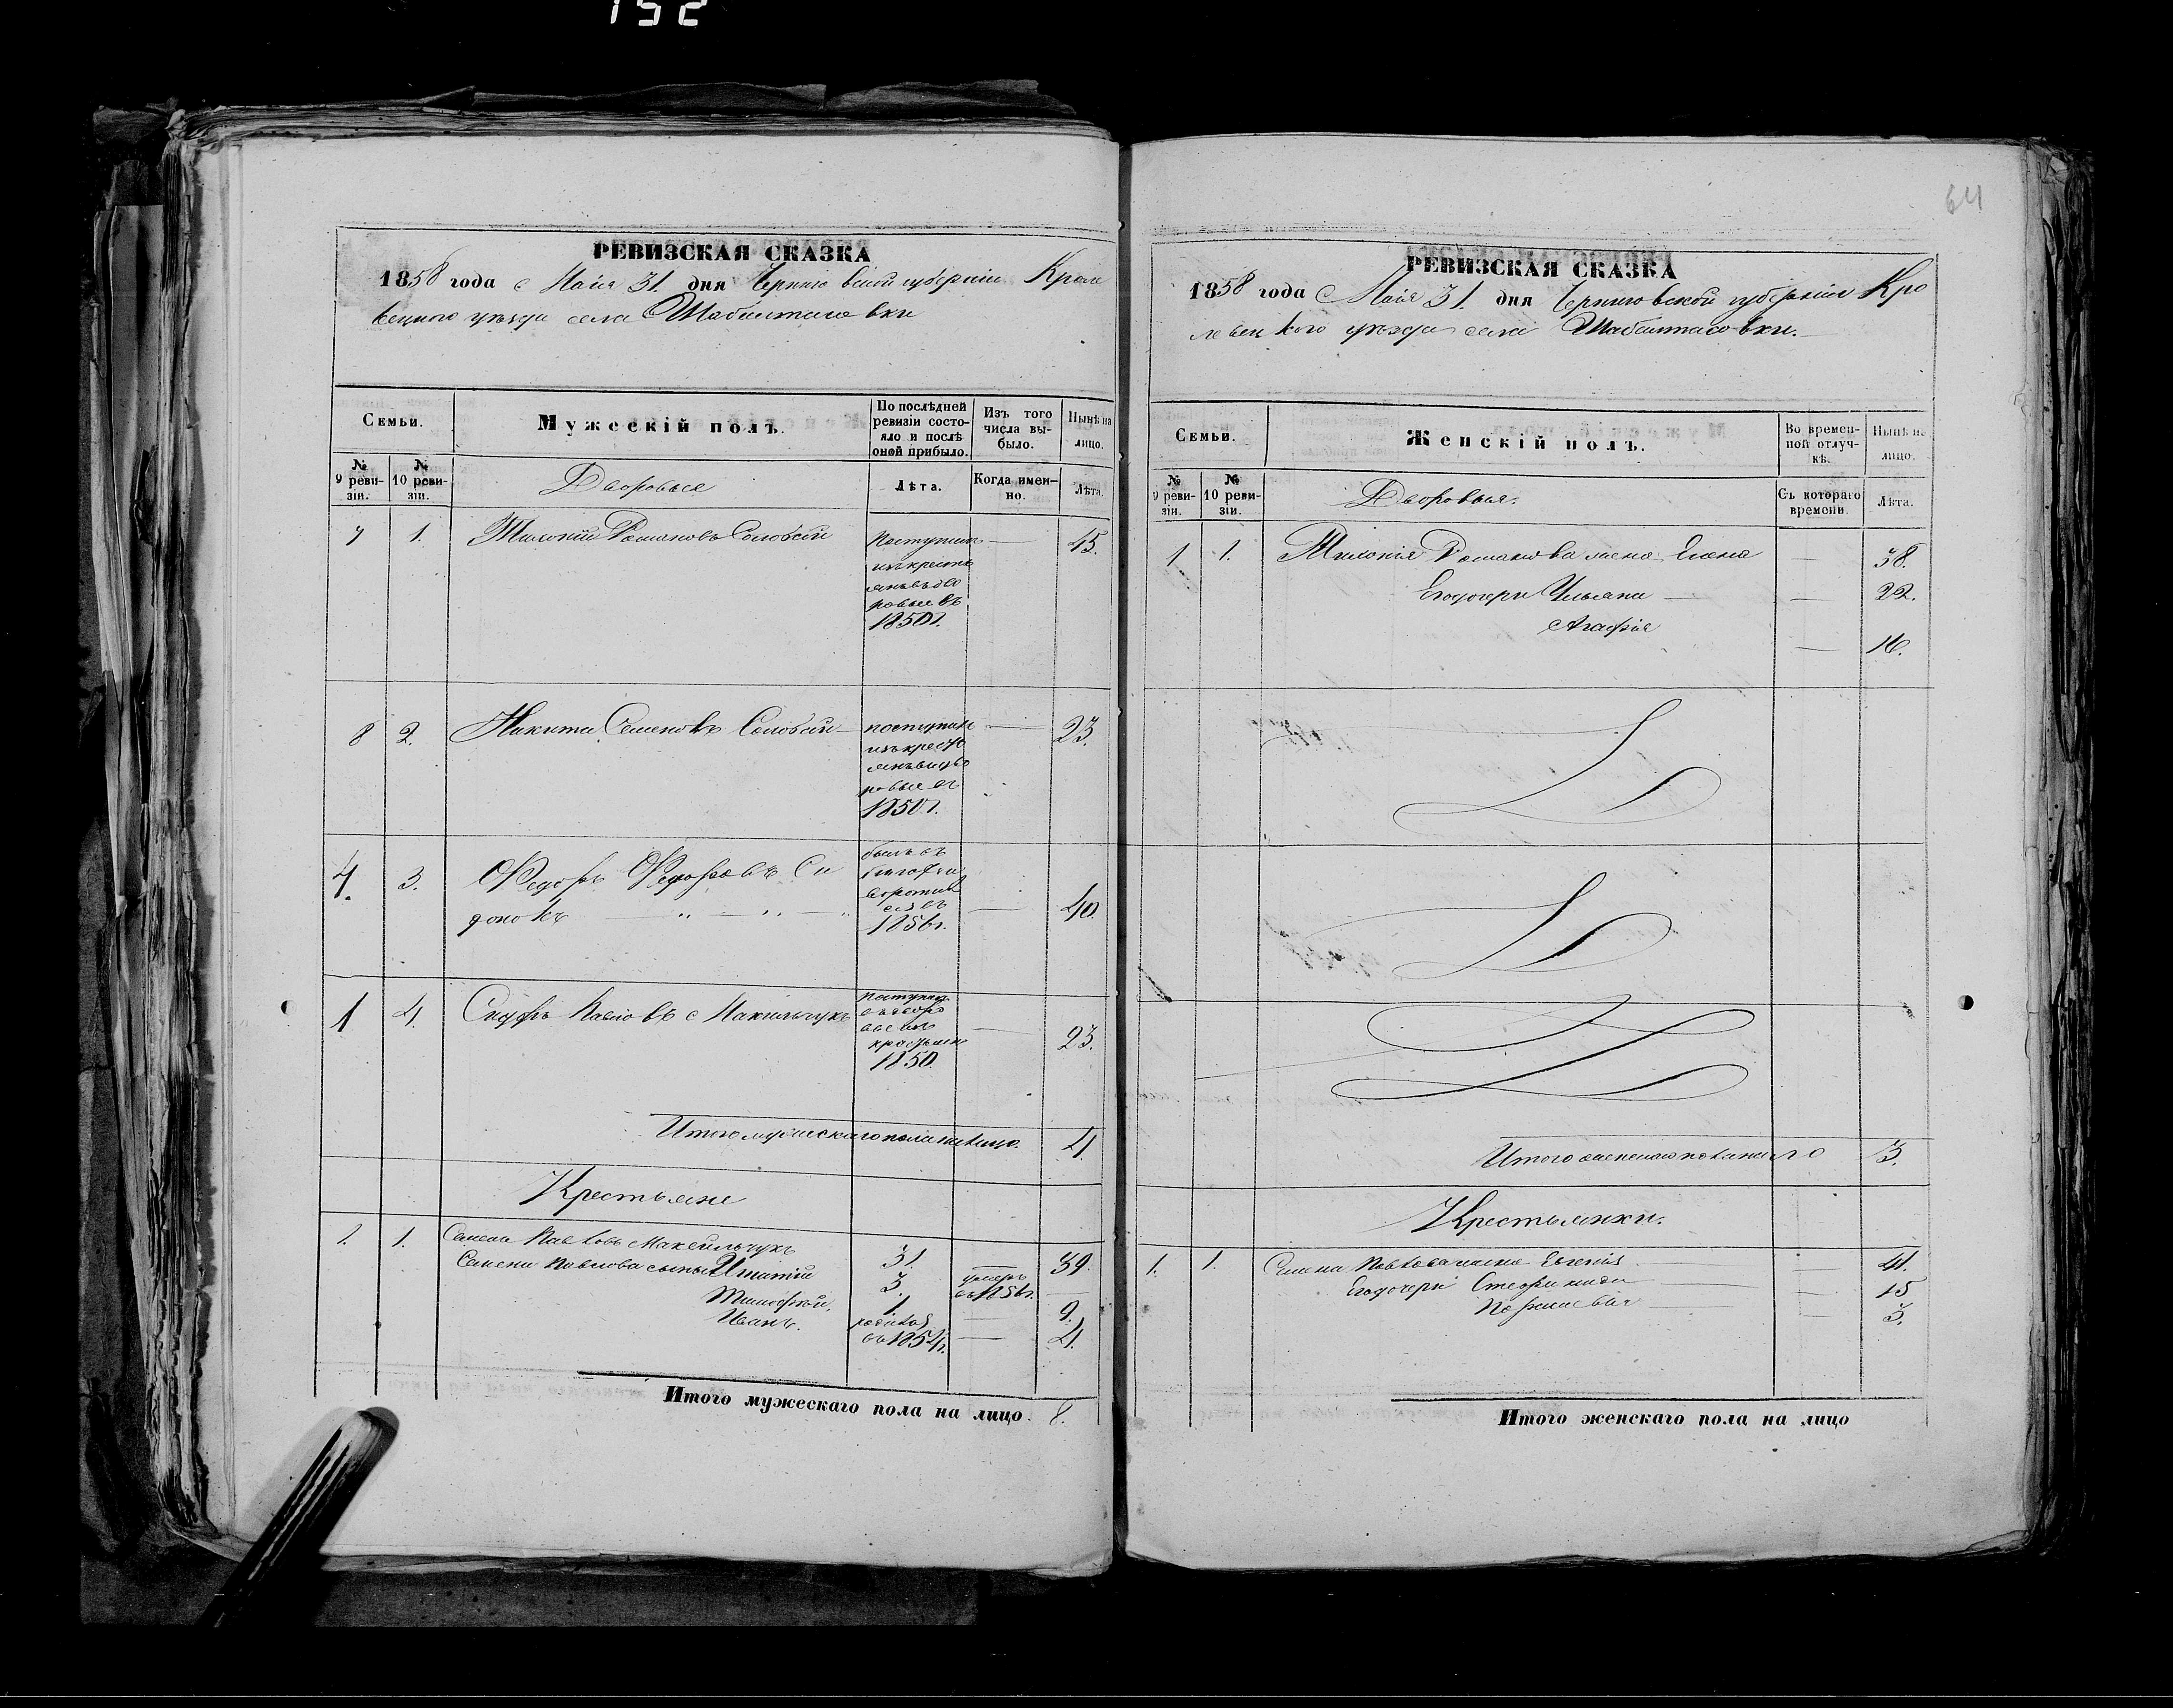 152
РЕВИЗСКАЯ СКАЗКА
1858 года Мая 31. дня Черниговской губерніи Кроле
вецкаго уѣзда села Шабалтасовки
Семьи.
Мужескій полъ.
По послѣдней ревизіи состояло и послѣ оной прибыло.
Изъ того числа выбыло.
Нынѣ на лицо.
№ 9 ревизіи.
№ 10 ревизіи.
Дворовые
Лѣта.
Когда именно.
Лѣта.
7 1. Романовъ Соловей Поступилъ — 45.
изъ кресть
янъ въ дво
ровые въ
1850 г.
8 2. Никита Семеновъ Соловей поступилъ — 23.
изъ кресть
янъ въ дво
ровые въ
1850 г.
4. 3. Федоръ Федоровъ Си былъ въ
доно къ 1856 г. — 40.
1 4. Сидоръ Павловъ Поступилъ — 23.
1850.
Итого мужескаго пола на лицо. 4.
Крестьяне
1. 1. Семенъ Павловъ 31. — 39.
Семена Павлова сыны Игнатій 3. умеръ въ 1856 г. —
Тимофей. 1. — 9.
Иванъ. родился въ 1854 г. — 4.
Итого мужескаго пола на лицо. 8.
64
РЕВИЗСКАЯ СКАЗКА
1858 года Мая 31. дня Черниговской губерніи Кро
левецкого уѣзда села Шабалтасовки.
Семьи.
Женскій полъ.
Во временной отлучкѣ.
Нынѣ на лицо.
№ 9 ревизіи.
№ 10 ревизіи.
Дворовыя.
Съ котораго времени.
Лѣта.
1 1. Романова жена Елена — 38.
Егодочери Ульяна — 22.
Агафія — 16.
Итого женскаго пола на лицо 3.
Крестьянки.
1. 1. Семена Павлова жена Евгенія — 41.
Егодочери Стефанида — 15
— 3.
Итого женскаго пола на лицо